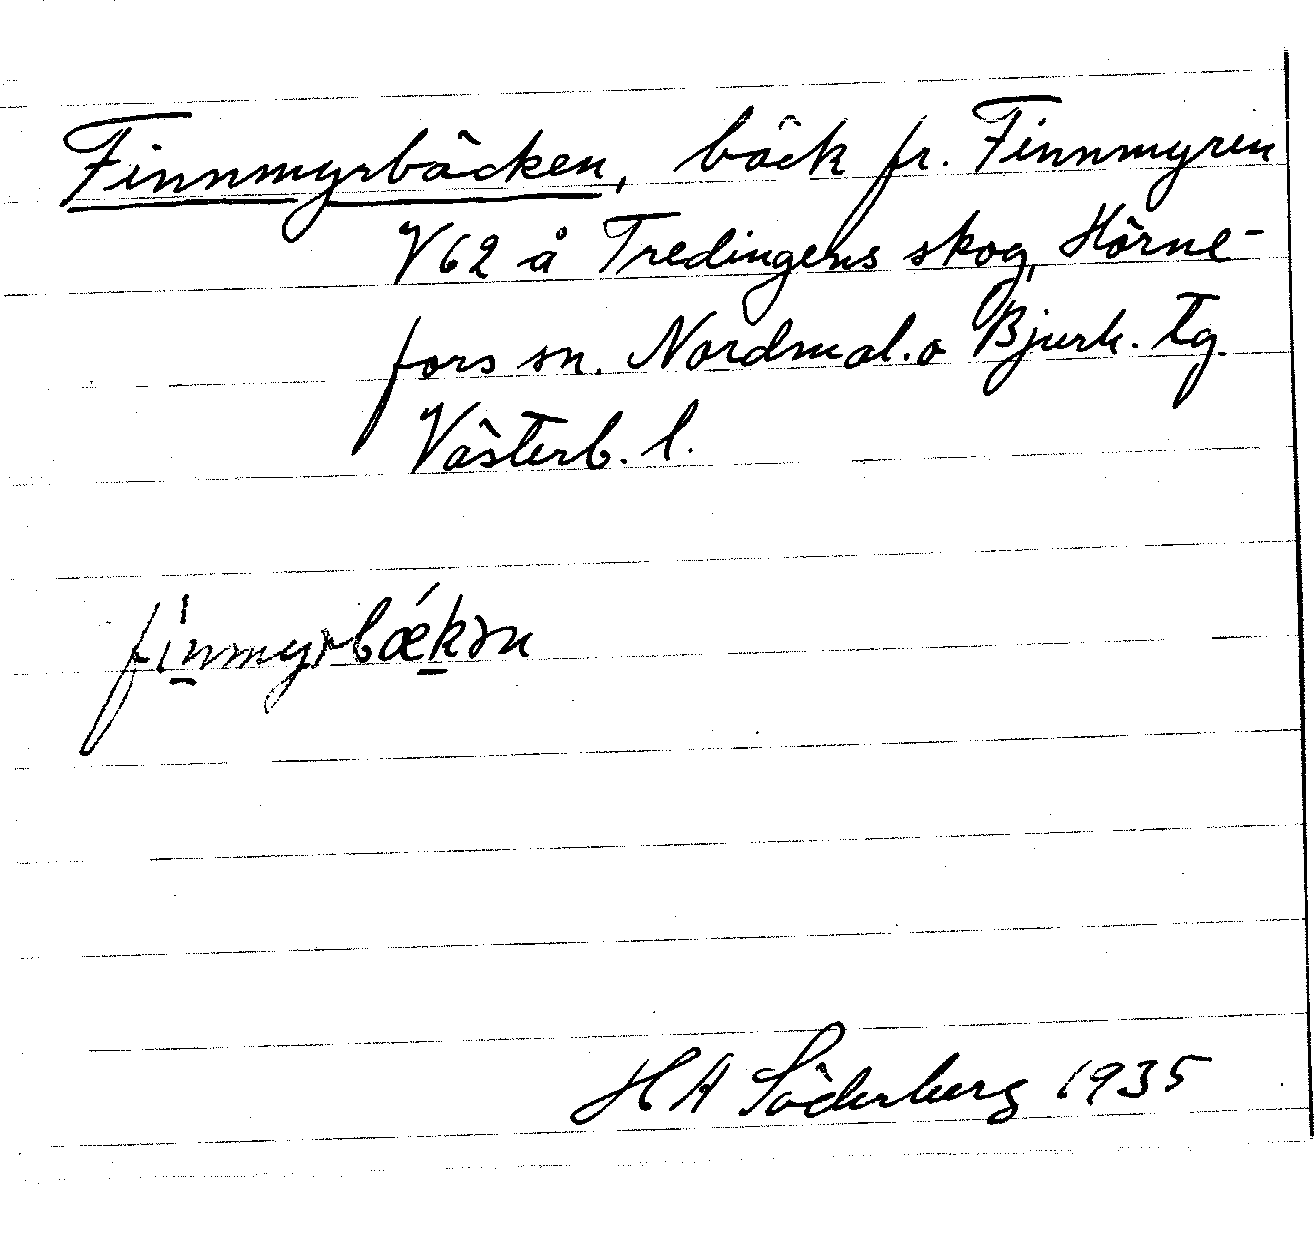 Finnmyrbäcken, bäck fr. Finnmyren
V62 å Tredingens skog, Hörne-
fors sn. Nordmal. o Bjurh. tg.
Västerb. l.
fínmyrbǽkən
H A Söderberg 1935